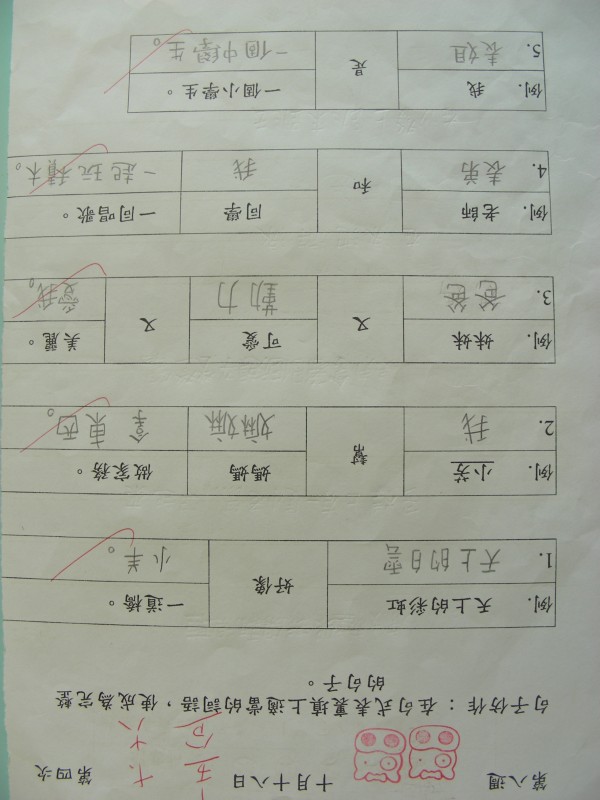 第八週 十月十八日 第四次
句子仿作：在句式表裏填上適當的詞語，使成為完整
的句子。
例. 天上的彩虹 好像 一道橋。
1. 天上的白雲 小羊。
例. 小芳 幫 媽媽 做家務。
2. 我 嫲嫲 拿東西。
例. 妹妹 又 可愛 又 美麗。
3. 爸爸 勤力 愛我。
例. 老師 和 同學 一同唱歌。
4. 表弟 我 一起玩積木。
例. 我 是 一個小學生。
5. 表姐 一個中學生。